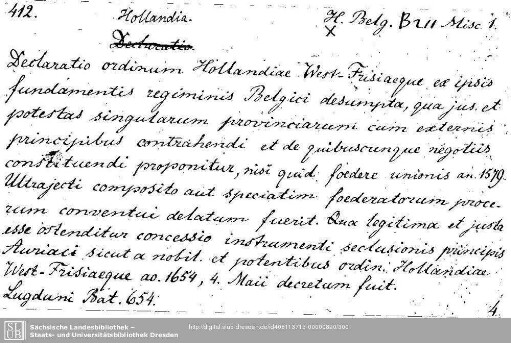 412.
Hollandia.
H. Belg. B 211 Misc 1.
X
Declaratio
Declaratio ordinum Hollandiae West-Frisiaeque ex ipsis
fundamentis regiminis Belgici desumpta, qua jus et
potestas singularum provinciarum cum externis
principibus contrahendi et de quibuscunque negotiis
constituendi proponitur, nisi quid foedere unionis an. 1579.
Ultrajecti composito aut speciatim foederatorum proce-
rum conventui delatum fuerit. Qua legitima et justa
esse ostenditur concessio instrumenti seclusionis principis
Auriaci sicut a nobil. et potentibus ordin. Hollandiae
West-Frisiaeque ao. 1654, 4. Maii decretum fuit.
Lugduni Bat. 654.
4.
SLUB
Sächsische Landesbibliothek –
Staats- und Universitätsbibliothek Dresden